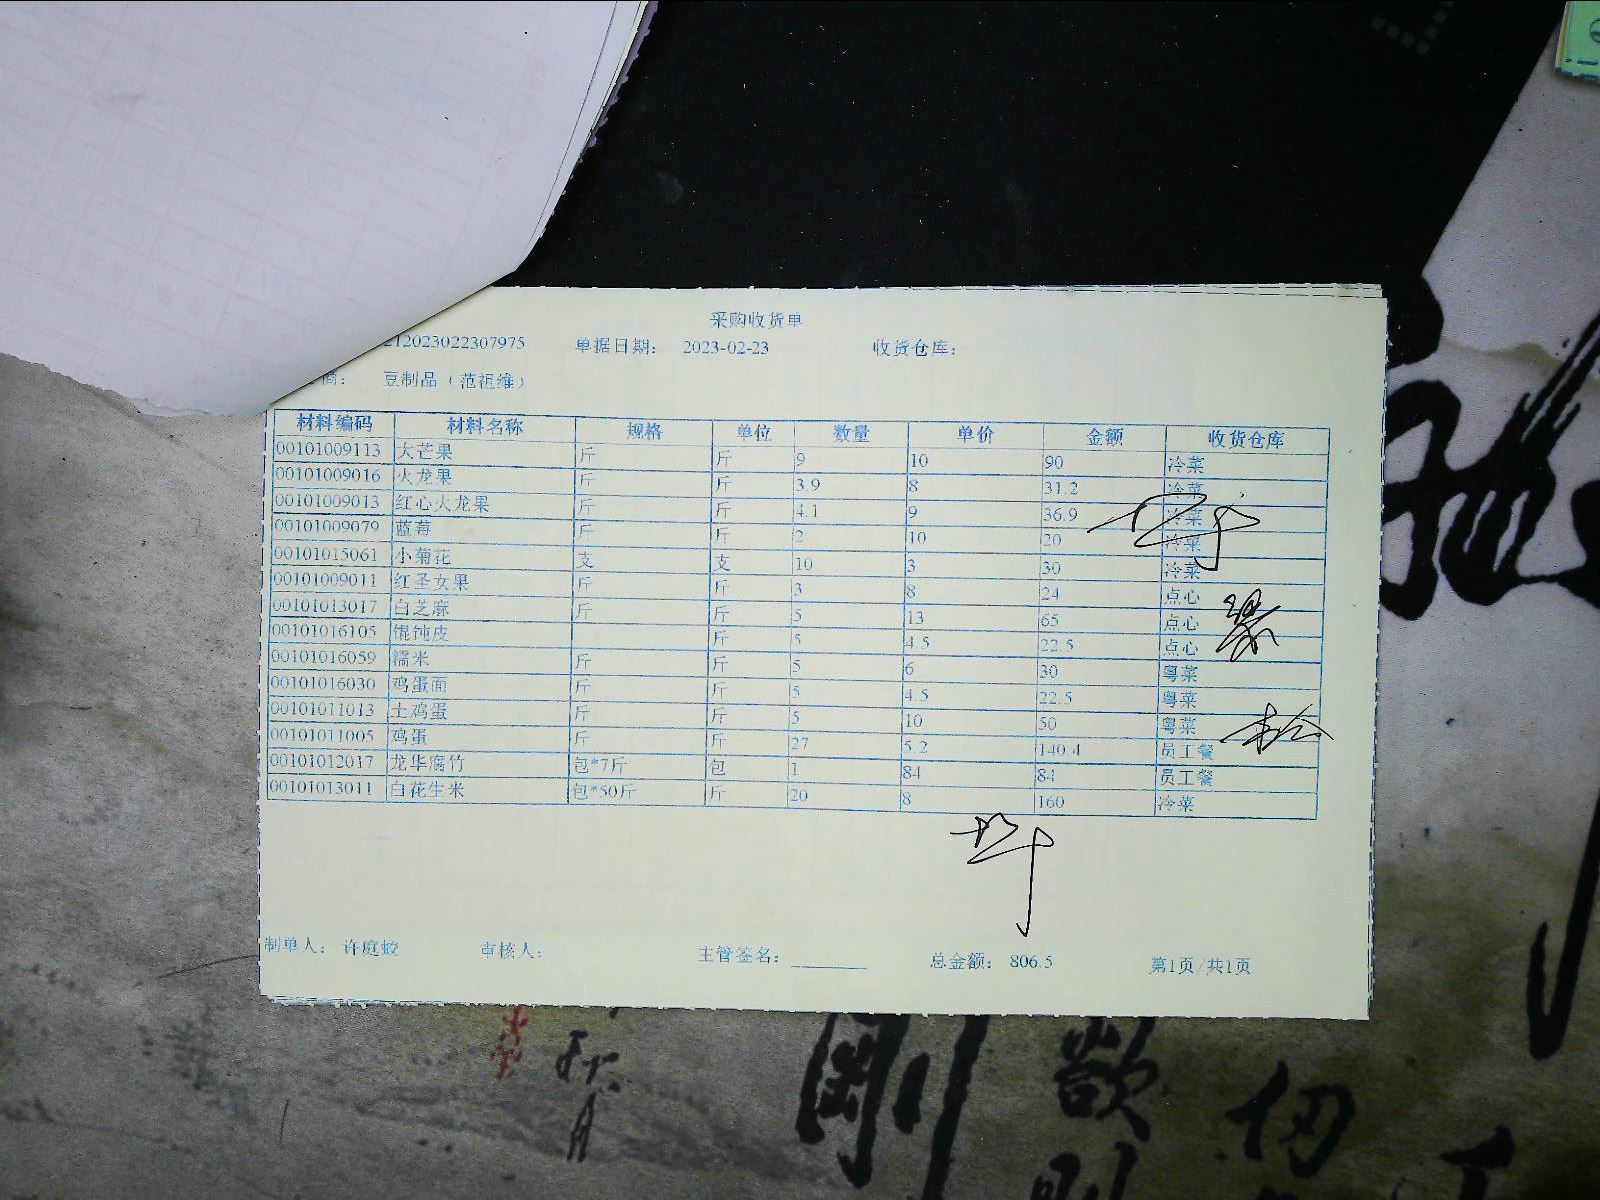 采购收货单
212023022307975 单据日期: 2023-02-23 收货仓库:
商: 豆制品 (范祖维)
材料编码 材料名称 规格 单位 数量 单价 金额 收货仓库
00101009113 大芒果 斤 斤 9 10 90 冷菜
00101009016 火龙果 斤 斤 3.9 8 31.2 冷菜
00101009013 红心火龙果 斤 斤 4.1 9 36.9 冷菜
00101009079 蓝莓 斤 斤 2 10 20 冷菜
00101015061 小菊花 支 支 10 3 30 冷菜
00101009011 红圣女果 斤 斤 3 8 24 点心
00101013017 白芝麻 斤 斤 5 13 65 点心
00101016105 馄饨皮 斤 5 4.5 22.5 点心
00101016059 糯米 斤 斤 5 6 30 粤菜
00101016030 鸡蛋面 斤 斤 5 4.5 22.5 粤菜
00101011013 土鸡蛋 斤 斤 5 10 50 粤菜
00101011005 鸡蛋 斤 斤 27 5.2 140.4 员工餐
00101012017 龙华腐竹 包*7斤 包 1 84 84 员工餐
00101013011 白花生米 包*50斤 斤 20 8 160 冷菜
制单人: 许庭蛟 审核人: 主管签名: 总金额: 806.5 第1页/共1页
剛 欲